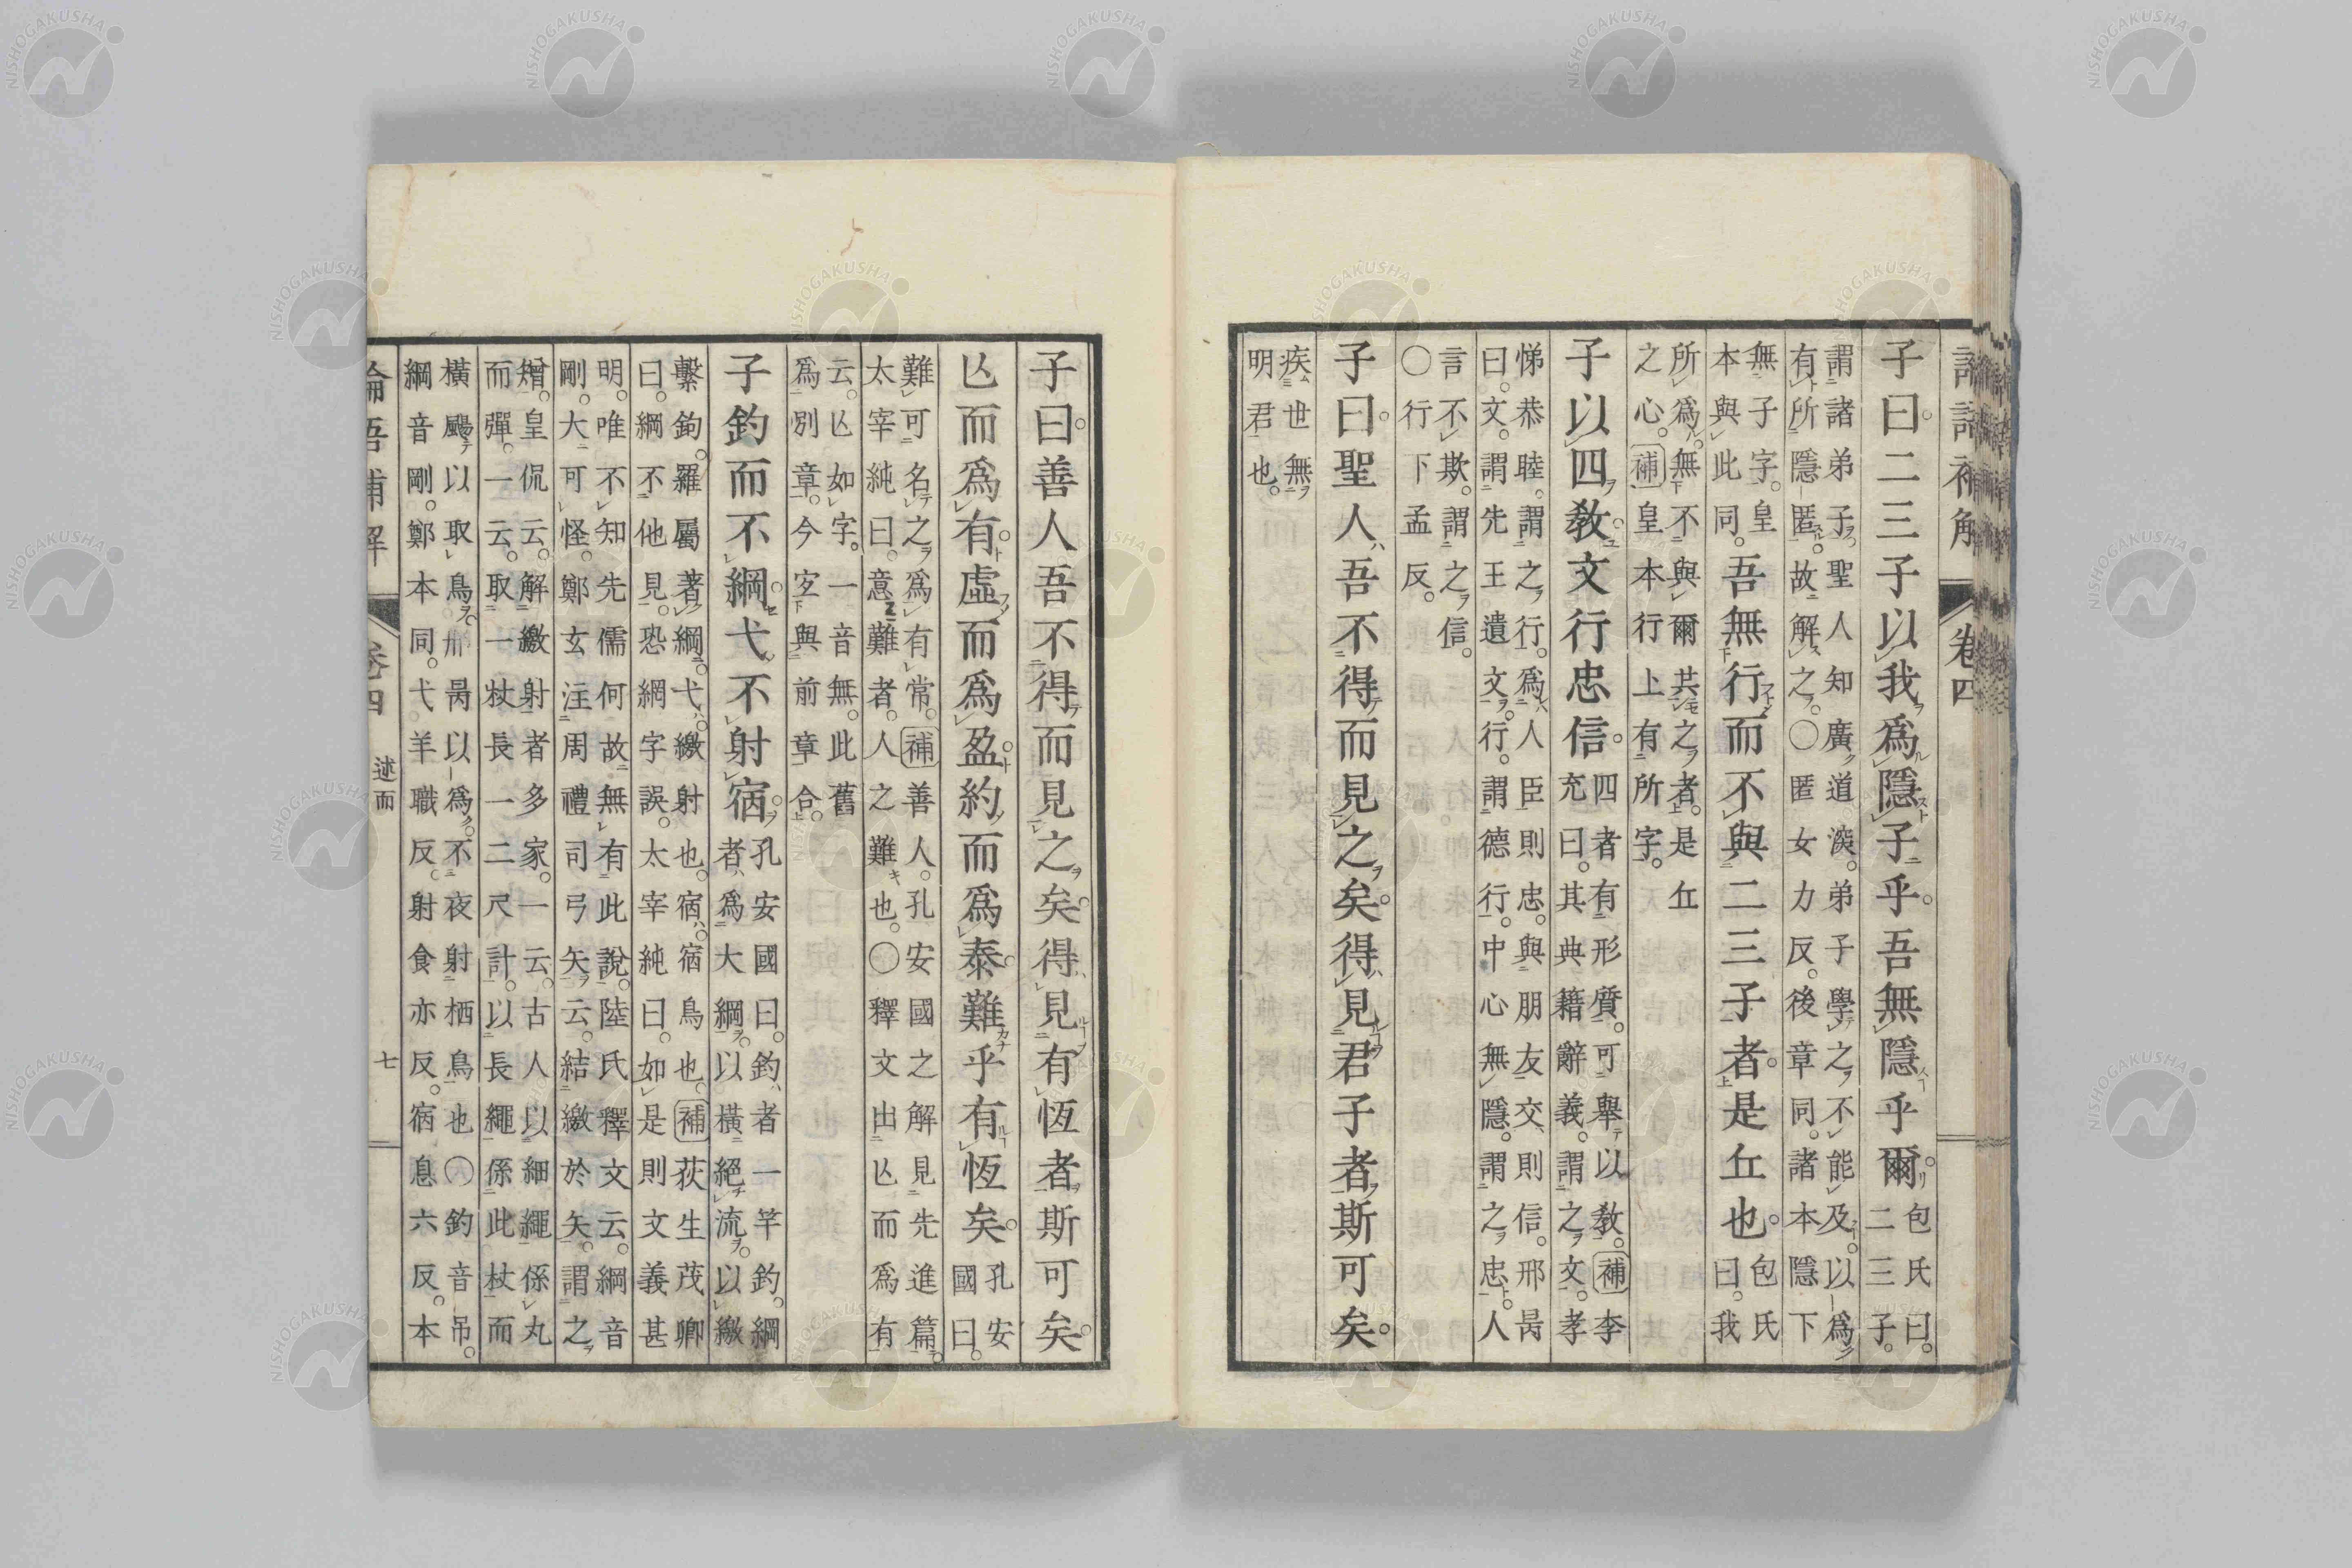 論語補解　卷四
子曰。二三子以我爲隱子乎。吾無隱乎爾。
包氏曰。
二三子。
謂諸弟子聖人知廣道深。弟子學之不能及。以爲
有所隱匿。故解之。〇匿女力反。後章同。諸本隱下
無子字。皇
本與此同。
吾無行而不與二三子者。是丘也。
包氏
曰。我
所爲。無不與爾共之者。是丘
之心。補皇本行上有所字。
子以四敎文行忠信。
四者有形質。可舉以敎。補李
充曰。其典籍辭義。謂之文。孝
悌恭睦。謂之行。爲人臣則忠。與朋友交則信。邢昺
曰。文。謂先王遺文。行。謂德行。中心無隱。謂之忠。人
言不欺。謂之信。
〇行下孟反。
子曰。聖人吾不得而見之矣。得見君子者斯可矣。
疾世無
明君也。
子曰。善人吾不得而見之矣。得見有恆者斯可矣。
亾而爲有。虛而爲盈。約而爲泰。難乎有恆矣。
孔安
國曰。
難可名之爲有常。補善人。孔安國之解見先進篇。
太宰純曰。意難者。人之難也。〇釋文出亾而爲有
云。亾如字。一音無。此舊
爲別章。今宐與前章合。
子釣而不綱。弋不射宿。
孔安國曰。釣者一竿釣。綱
者爲大綱。以橫絕流。以繳
繫鉤。羅屬著綱。弋。繳射也。宿。宿鳥也。補荻生茂卿
曰。綱不他見。恐網字誤。太宰純曰。如是則文義甚
明。唯不知先儒何故無有此說。陸氏釋文云。綱音
剛。大可怪。鄭玄注周禮司弓矢云。結繳於矢。謂之
矰。皇侃云。解繳射者多家。一云。古人以細繩係丸
而彈。一云。取一杖長一二尺計。以長繩係此杖而
橫颺以取鳥。邢昺以爲。不夜射栖鳥也〇釣音吊。
綱音剛。鄭本同。弋羊職反。射食亦反。宿息六反。本
論語補解　卷四　述而　七